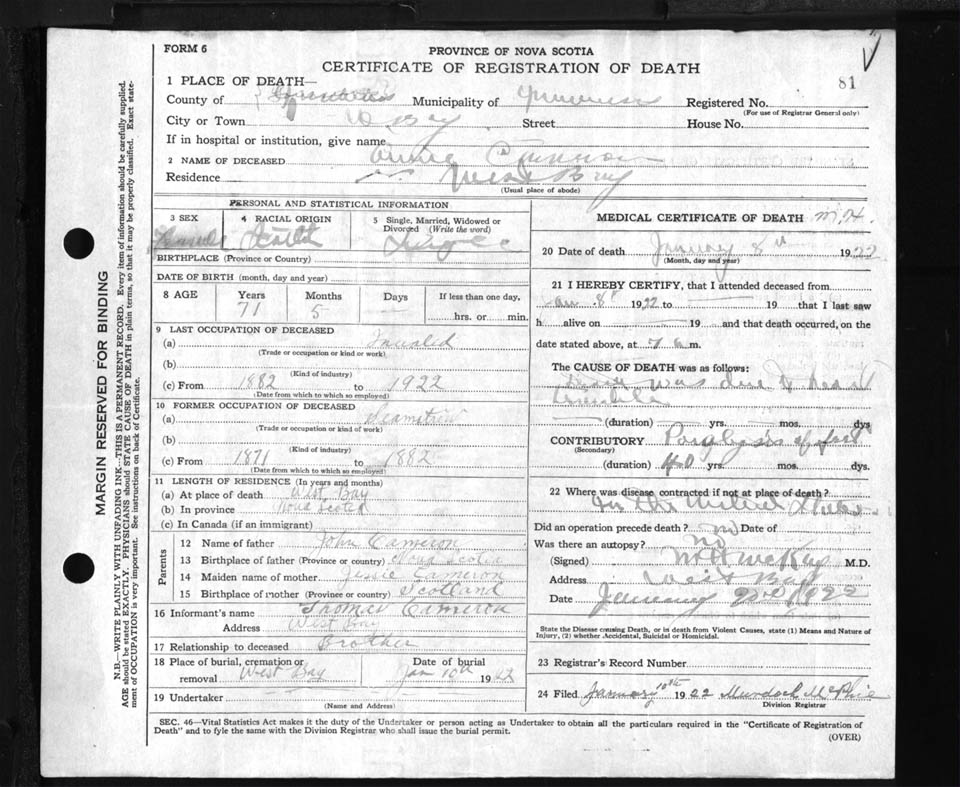 FORM 6
PROVINCE OF NOVA SCOTIA
CERTIFICATE OF REGISTRATION OF DEATH
81
1 PLACE OF DEATH—
County of Municipality of Registered No.
(For use of Registrar General only)
City or Town W Bay Street House No.
If in hospital or institution, give name
2 NAME OF DECEASED
Residence West Bay
(Usual place of abode)
PERSONAL AND STATISTICAL INFORMATION
3 SEX 4 RACIAL ORIGIN 5 Single, Married, Widowed or Divorced (Write the word)
Female Scotch Single
BIRTHPLACE (Province or Country)
DATE OF BIRTH (month, day and year)
8 AGE Years Months Days If less than one day,
71 5 hrs. or min.
9 LAST OCCUPATION OF DECEASED
(a) Invalid
(Trade or occupation or kind or work)
(b)
(Kind of industry)
(c) From 1882 to 1922
(Date from which to which so employed)
10 FORMER OCCUPATION OF DECEASED
(a) Seamstress
(Trade or occupation or kind of work)
(b)
(Kind of industry)
(c) From 1871 to 1882
(Date from which to which so employed)
11 LENGTH OF RESIDENCE (In years and months)
(a) At place of death West Bay
(b) In province Nova Scotia
(c) In Canada (if an immigrant)
Parents
12 Name of father John Cameron
13 Birthplace of father (Province or country) Nova Scotia
14 Maiden name of mother Jessie Cameron
15 Birthplace of mother (Province or country) Scotland
16 Informant's name Thomas Cameron
Address West Bay
17 Relationship to deceased Brother
18 Place of burial, cremation or removal West Bay Date of burial Jan 10th 19
19 Undertaker
(Name and Address)
MEDICAL CERTIFICATE OF DEATH M.H.
20 Date of death January 8th 1922
(Month, day and year)
21 I HEREBY CERTIFY, that I attended deceased from
Jan. 8th 1922 to 19 that I last saw
h alive on 19 and that death occurred, on the
date stated above, at 7 a m.
The CAUSE OF DEATH was as follows:
Death was due to heart
(duration) yrs. mos. dys
CONTRIBUTORY Paralysis of feet
(Secondary)
(duration) 40 yrs. mos. dys.
22 Where was disease contracted if not at place of death?
In the United States
Did an operation precede death? no Date of
Was there an autopsy? no
(Signed) M.D.
Address West Bay
Date January 1922
State the Disease causing Death, or in death from Violent Causes, state (1) Means and Nature of Injury, (2) whether Accidental, Suicidal or Homicidal.
23 Registrar's Record Number
24 Filed January 10th 1922 Murdoch McPhie
Division Registrar
SEC. 46—Vital Statistics Act makes it the duty of the Undertaker or person acting as Undertaker to obtain all the particulars required in the "Certificate of Registration of
Death" and to fyle the same with the Division Registrar who shall issue the burial permit.
(OVER)
MARGIN RESERVED FOR BINDING
N.B.—WRITE PLAINLY WITH UNFADING INK—THIS IS A PERMANENT RECORD. Every item of information should be carefully supplied.
AGE should be stated EXACTLY. PHYSICIANS should STATE CAUSE OF DEATH in plain terms, so that it may be properly classified. Exact state-
ment of OCCUPATION is very important. See instructions on back of Certificate.